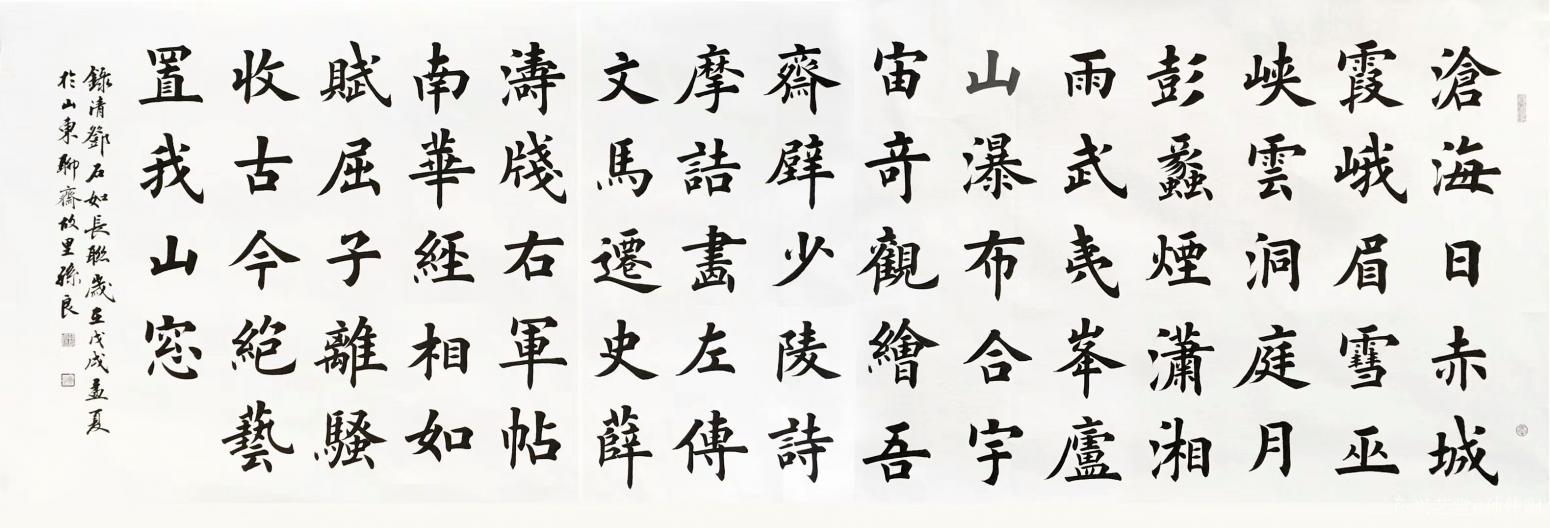 滄海日赤城
霞峨眉雪巫
峽雲洞庭月
彭蠡煙瀟湘
雨武夷峯廬
山瀑布合宇
宙奇觀繪吾
齋壁少陵詩
摩詰畫左傳
文馬遷史薛
濤牋右軍帖
南華經相如
賦屈子離騷
收古今絕藝
置我山窓
錄清鄧石如長聯歲在戊戌孟夏
於山東聊齋故里孫良